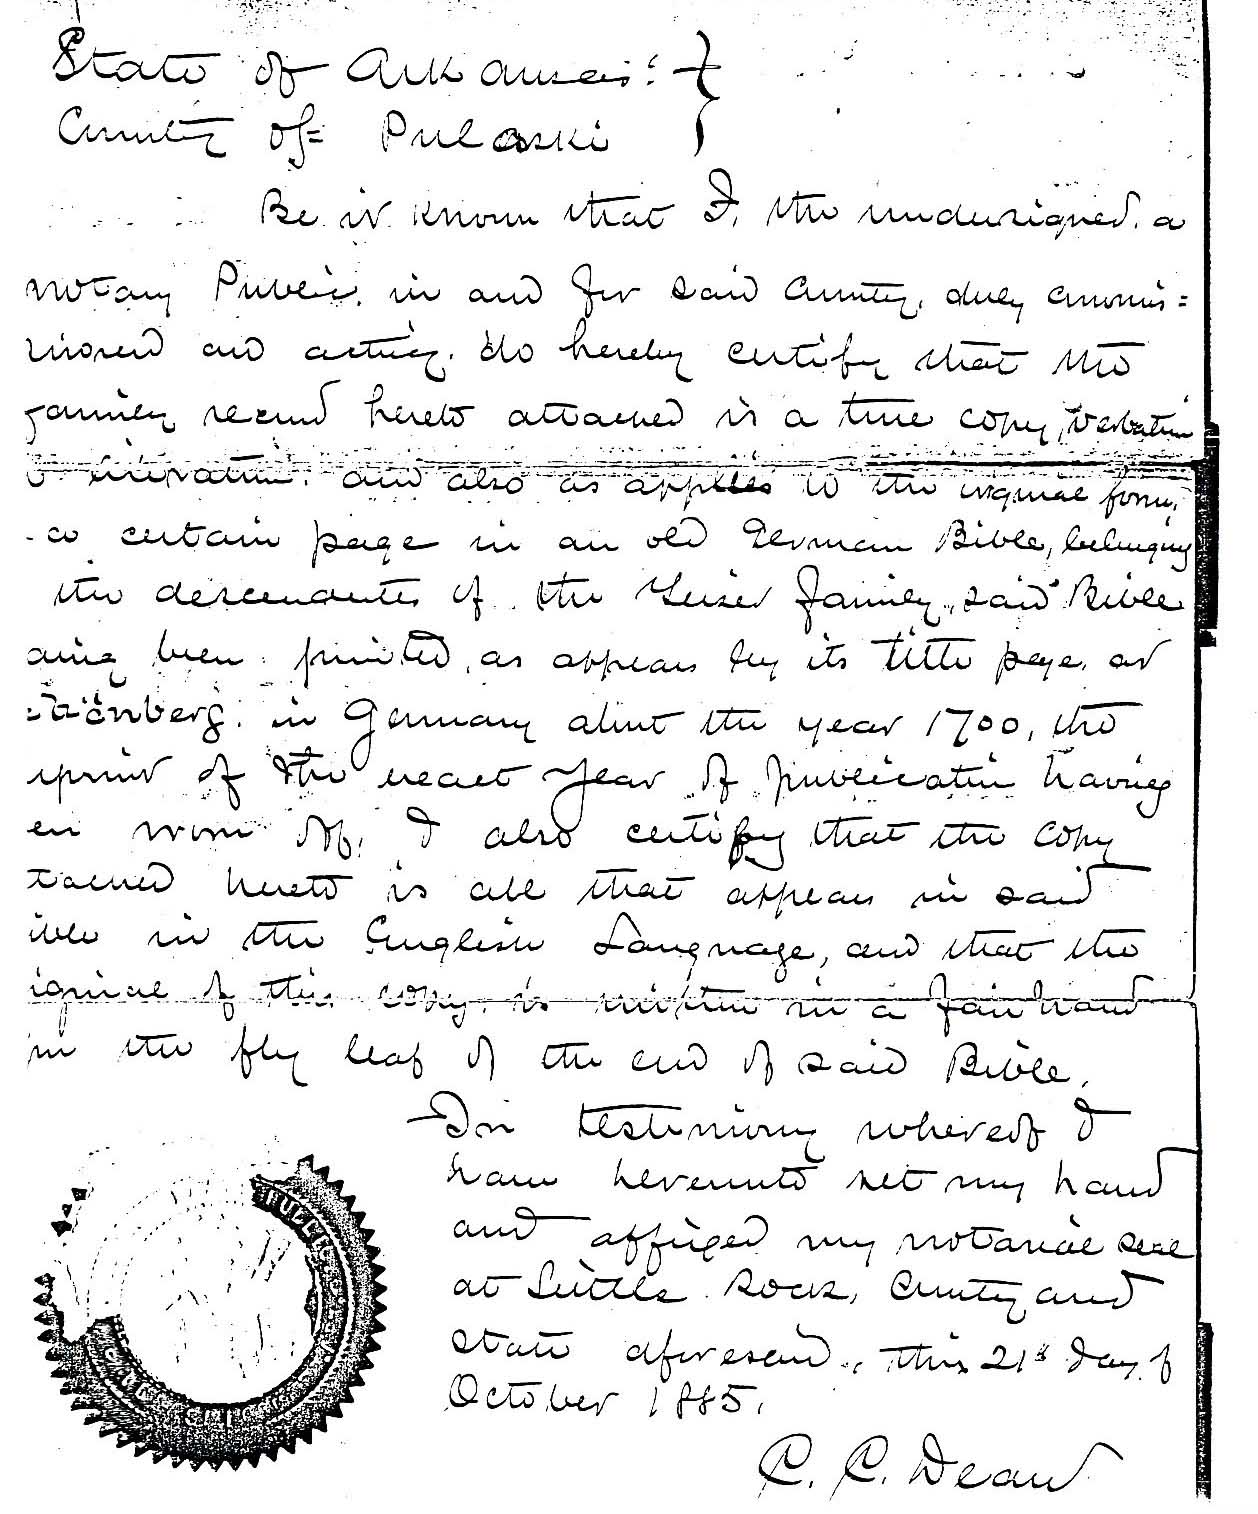 State of Arkansas }
County of Pulaski }
Be it known that I, the undersigned, a
notary Public, in and for said County, duly commis=
sioned and acting, do hereby certify that the
family record hereto attached is a true copy, verbatim
literatim, and also as applies to the original form,
certain page in an old German Bible, belonging
the descendants of the Family, said Bible
aving been printed, as appears by its title page, at
in Germany about the year 1700, the
print of the exact year of publication having
en worn off, I also certify that the copy
tached hereto is all that appears in said
ible in the English Language, and that the
iginal of this copy is written in a fair hand
in the fly leaf of the end of said Bible.
In testimony whereof I
have hereunto set my hand
and affixed my notarial seal
at Little Rock, County and
State aforesaid, this 21st day of
October 1885.
C. C. Dean